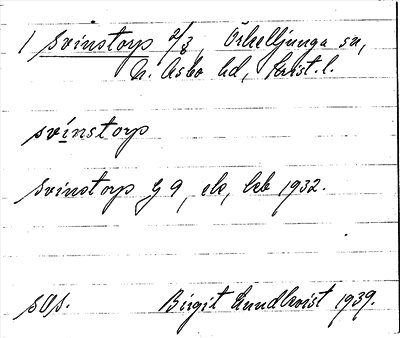 1 Svinstorp 2/8, Örkelljunga sn,
N. Åsbo hd, Krist. l.
svínstorp
Svinstorp G 9, ek, kb 1932.
sOs. Birgit Lundkvist 1939.